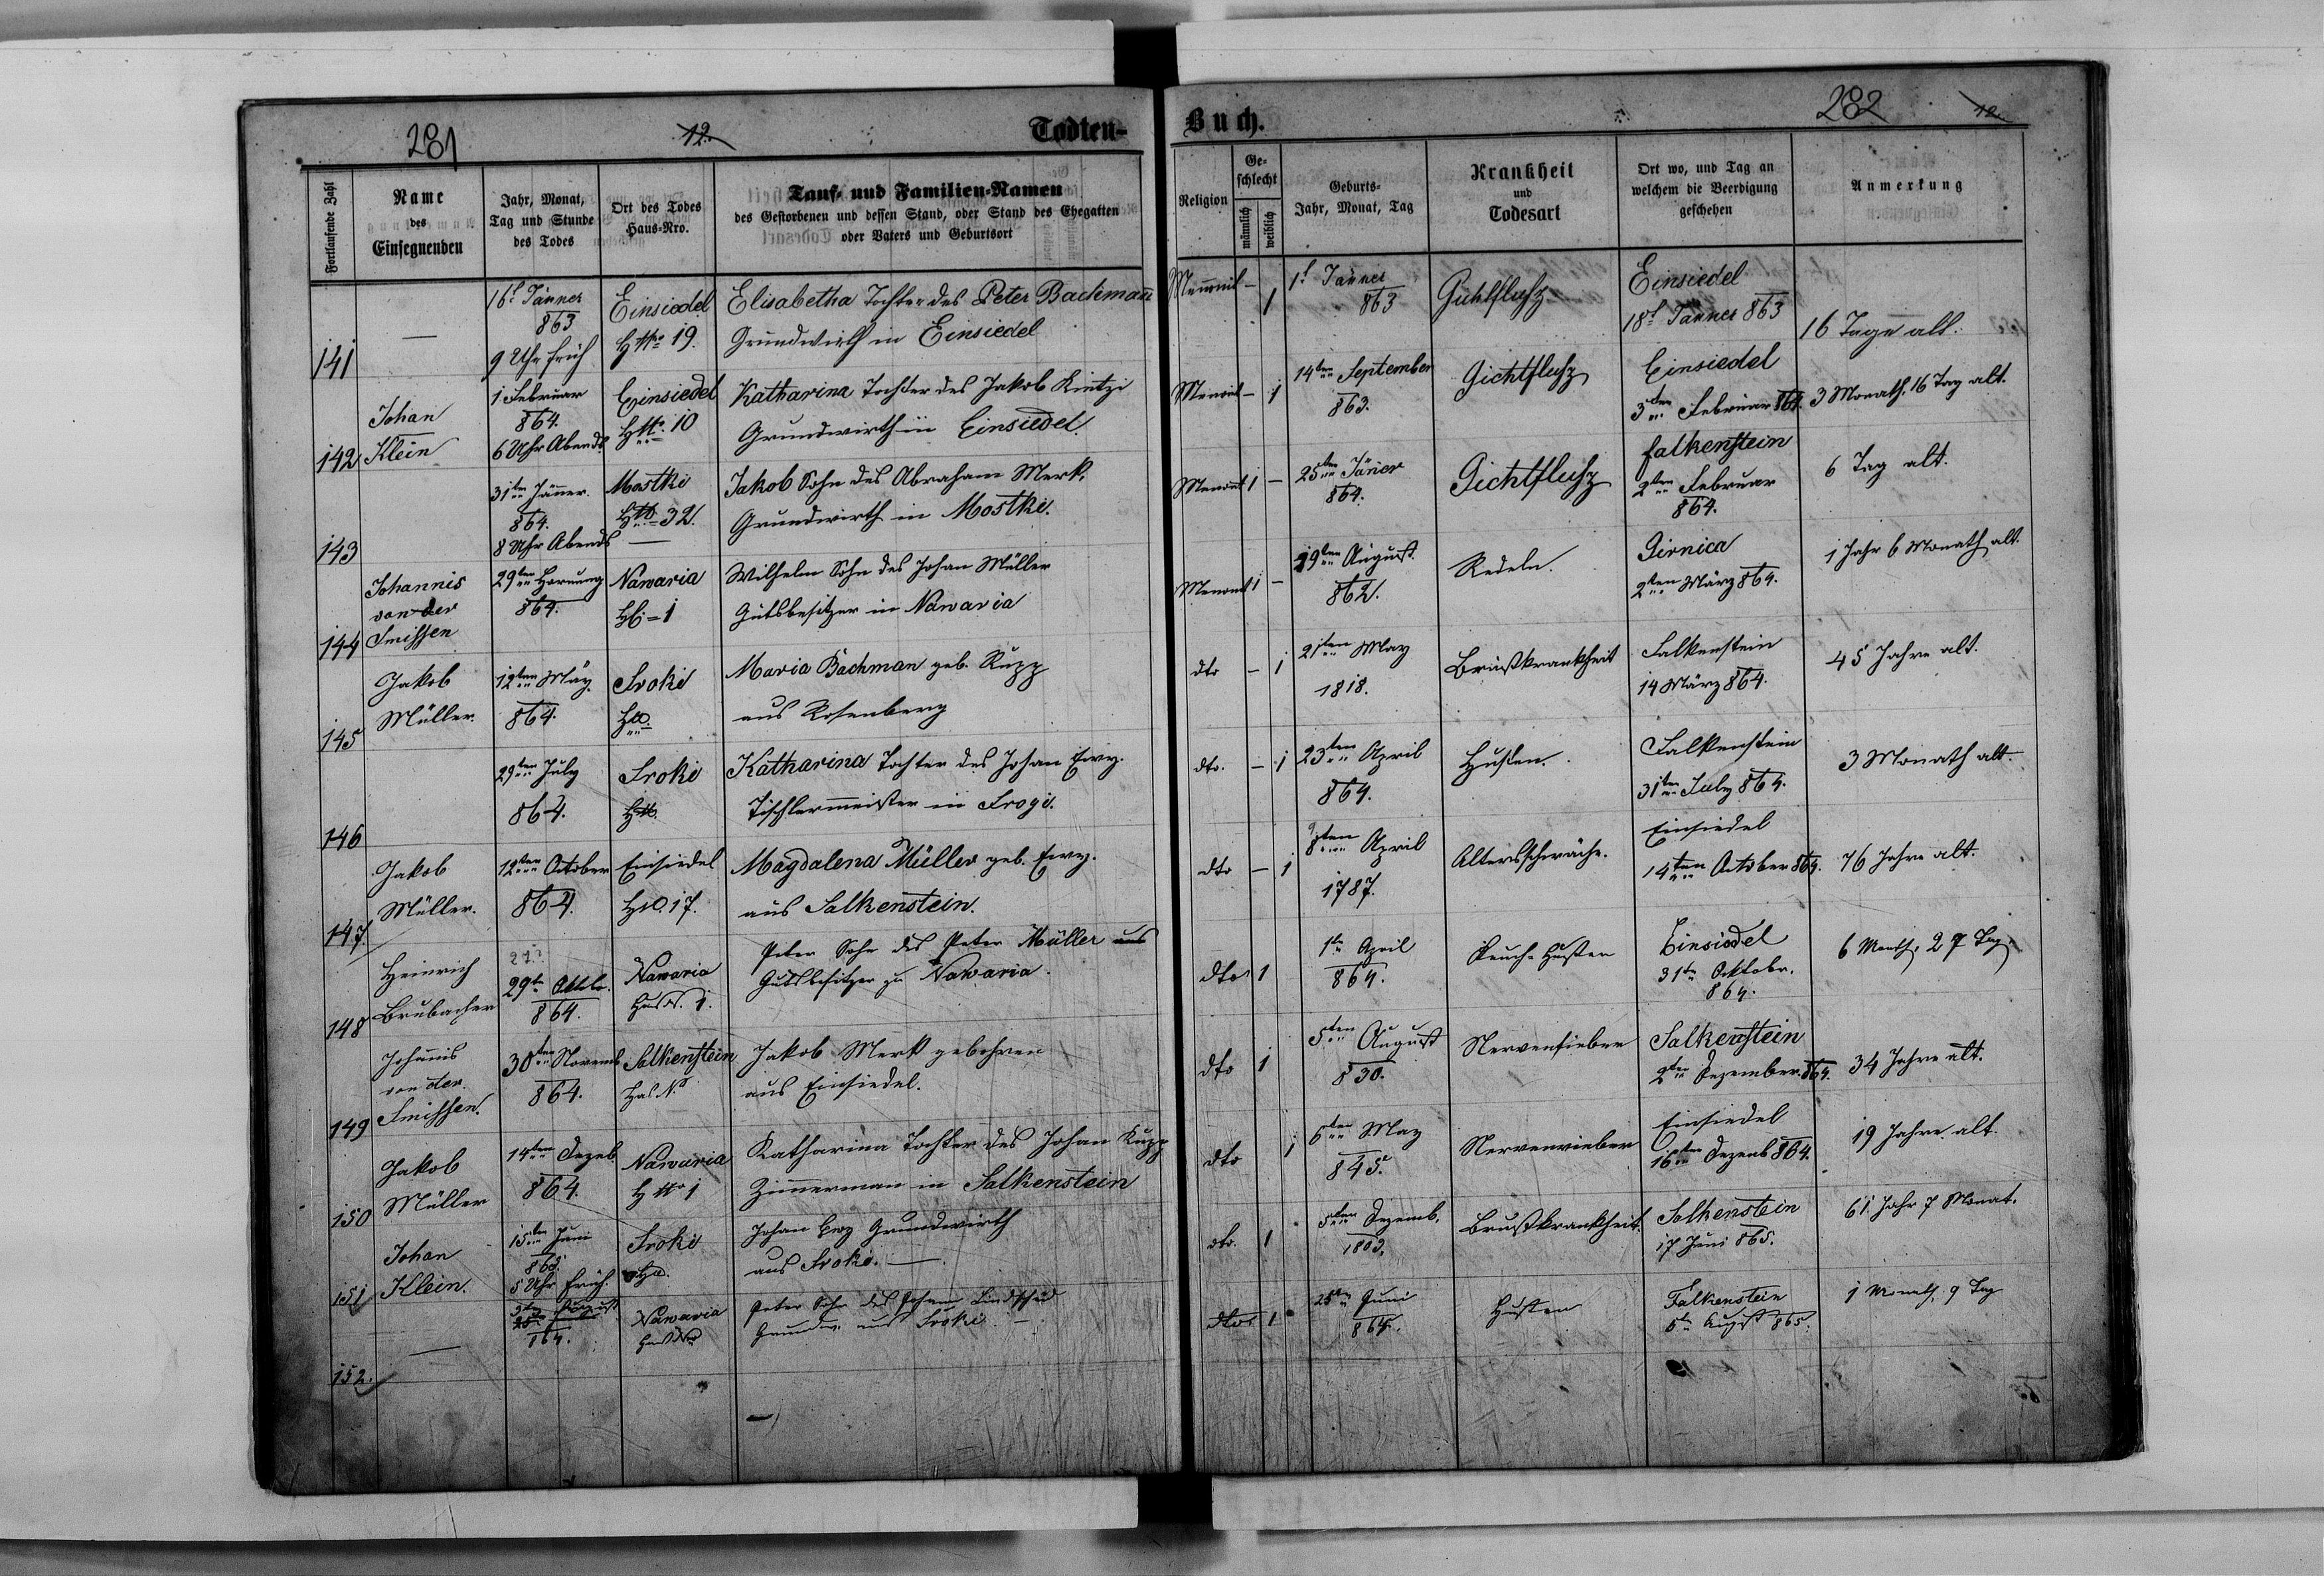 281
12.
Todten-
Buch.
282
12.
Fortlaufende Zahl
Name
des
Einsegnenden
Jahr, Monat,
Tag und Stunde
des Todes
Ort des Todes
Haus-Nro.
Tauf- und Familien-Namen
des Gestorbenen und dessen Stand, oder Stand des Ehegatten
oder Vaters und Geburtsort
Religion
Ge-
schlecht
männlich
weiblich
Geburts-
Jahr, Monat, Tag
Krankheit
und
Todesart
Ort wo, und Tag an
welchem die Beerdigung
geschehen
Anmerkung
141
—
16t Jänner
863
9 Uhr früh
Einsiedel
HNro 19.
Elisabetha Tochter des Peter Bachmañ
Grundwirth in Einsiedel
Menonit — 1
1t Jänner
863
Gichtflusz
Einsiedel
18t Jänner 863
16 Tage alt.
142
Johan
Klein
1 Februar
864.
6 Uhr Abends
Einsiedel
HNo. 10
Katharina Tochter des Jakob Kintzi
Grundwirth in Einsiedel.
Menonit — 1
14ten September
863.
Gichtflusz
Einsiedel
3ten Februar 864.
3 Monath, 16 Tag alt.
143
31ten Jänner.
864.
8 Uhr Abends
Mostki
HNo = 32.
—
Jakob Sohn des Abraham Merk,
Grundwirth in Mostki.
Menonit 1 —
25ten Jäner
864.
Gichtflusz
falkenstein
2ten Februar
864.
6 Tag alt.
144
Johannis
van der
Smissen
29ten Hornung
864.
Nawaria
= 1
Wilhelm Sohn des Johan Müller
Gutsbesitzer in Nawaria
Menonit 1 —
19ten August
862.
Redeln.
Girnica
2ten März 864.
1 Jahr 6 Monath alt.
145
Jakob
Müller.
12ten May
864.
Sroki
Maria Bachman geb. Rupp
aus Rosenberg
dto — 1
21ten May
1818.
Brustkrankheit
Falkenstein
14 März 864.
45 Jahre alt.
146
29ten July
864.
Sroki
Katharina Tochter des Johan Ewy.
Tischlermeister in Srogi.
dto. — 1
23ten April
864.
Husten.
Falkenstein
31ten July 864.
3 Monath alt.
147.
Jakob
Müller.
12ten October
864.
Einsiedel
17.
Magdalena Müller geb. Ewy.
aus Falkenstein.
dto — 1
8ten April
1787.
Altersschwäche.
Einsiedel
14ten October 864.
76 Jahre alt.
148
Heinrich
Brubacher
29t Oktbr.
864.
Nawaria
Haus N. 1.
Peter Sohn des Peter Müller aus
Gutsbesitzer zu Nawaria.
dto 1
1tn April
864.
Keuch-Husten
Einsiedel
31tn Oktobr.
864.
6 Month, 29 Tag
149
Johanis
van der.
Smissen.
30ten Novemb
864.
Falkenstein
Jakob Merk gebohren
aus Einsiedel.
dto 1
5ten August
830.
Nervenfieber
Falkenstein
2ten Dezember 864.
34 Jahre alt.
150
Jakob
Müller
14ten Dezeb
864.
Nawaria
HNro 1
Katharina Tochter des Johan Rupp
Zimmerman in Falkenstein
dto 1
6ten May
845.
Nervenvieber
Einsiedel
16ten Dezemb 864.
19 Jahre alt.
151
Johan
Klein.
15ten Juni
865.
5 Uhr früh.
Sroki
Johan Ewy Grundwirth
aus Sroki. —
dto. 1
5ten Dezemb.
1803.
Brustkrankheit.
Falkenstein
17 Juni 865.
61 Jahr 7 Monat.
152.
—
3tn August
864.
Nawaria
Peter Sohn des Johann
Grundw. aus Sroki. —
dto 1
25tn Juni
864.
Husten
Falkenstein
5tn August 865.
1 Month, 9 Tag